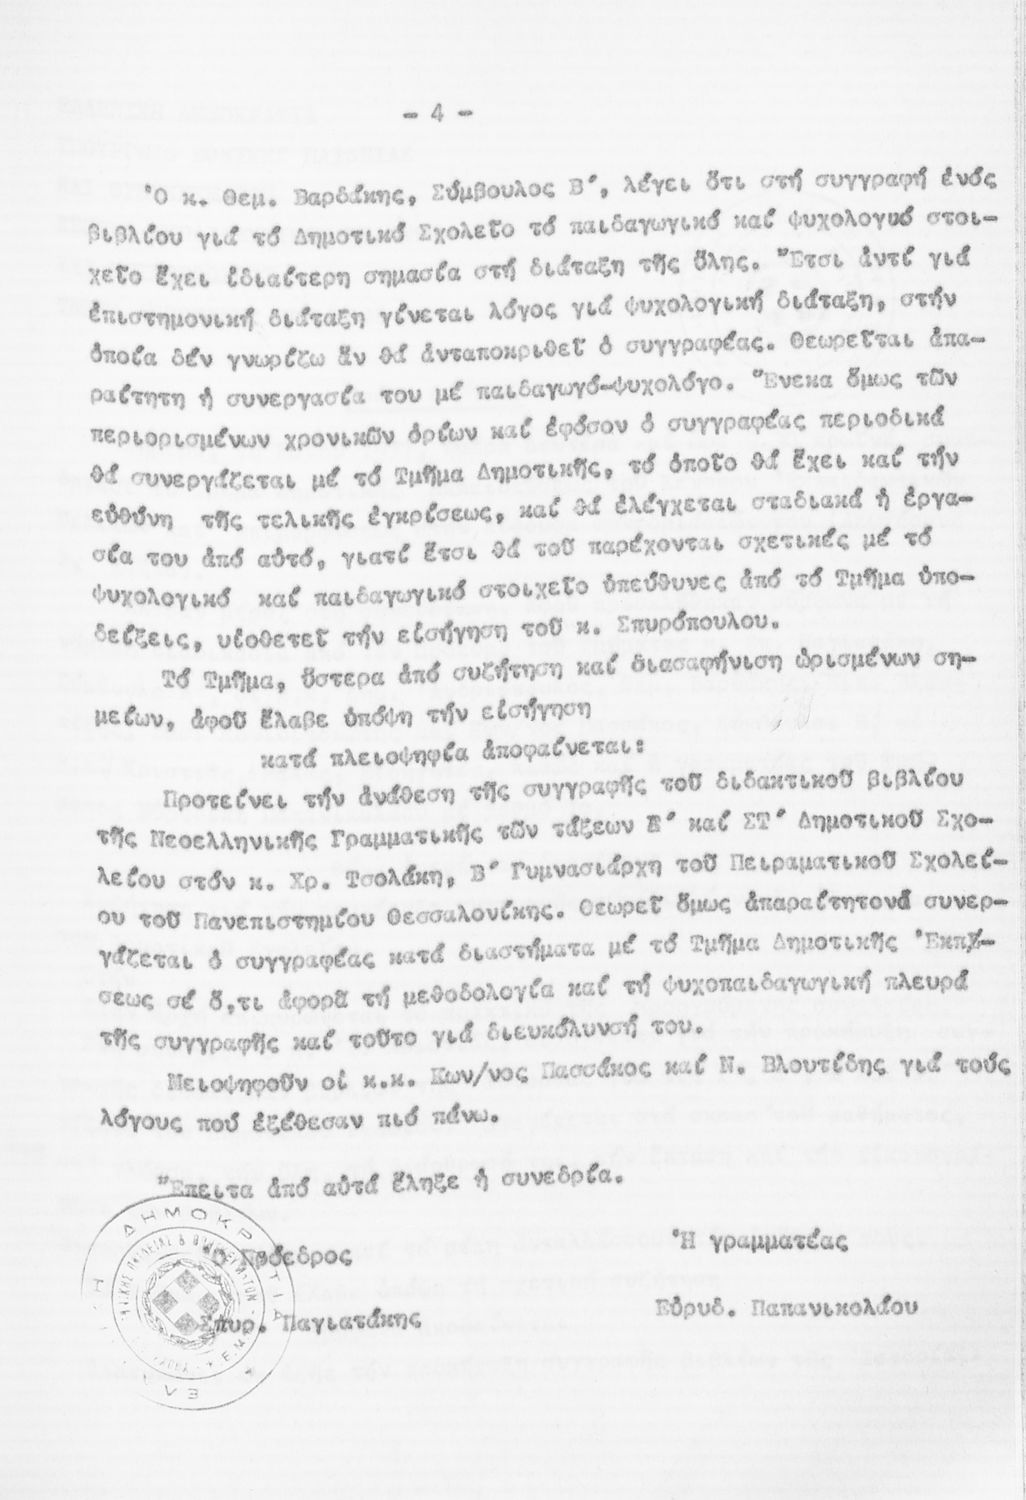 - 4 -
Ὁ κ. Θεμ. Βαρδάκης, Σύμβουλος Β´, λέγει ὅτι στή συγγραφή ἑνός
βιβλίου γιά τό Δημοτικό Σχολεῖο τό παιδαγωγικό καί ψυχολογικό στοι-
χεῖο ἔχει ἰδιαίτερη σημασία στή διάταξη τῆς ὕλης. Ἔτσι ἀντί γιά
ἐπιστημονική διάταξη γίνεται λόγος γιά ψυχολογική διάταξη, στήν
ὁποία δέν γνωρίζω ἄν θά ἀνταποκριθεῖ ὁ συγγραφέας. Θεωρεῖται ἀπα-
ραίτητη ἡ συνεργασία του μέ παιδαγωγό-ψυχολόγο. Ἕνεκα ὅμως τῶν
περιορισμένων χρονικῶν ὁρίων καί ἐφόσον ὁ συγγραφέας περιοδικά
θά συνεργάζεται μέ τό Τμῆμα Δημοτικῆς, τό ὁποῖο θά ἔχει καί τήν
εὐθύνη τῆς τελικῆς ἐγκρίσεως, καί θά ἐλέγχεται σταδιακά ἡ ἐργα-
σία του ἀπό αὐτό, γιατί ἔτσι θά τοῦ παρέχονται σχετικές μέ τό
ψυχολογικό καί παιδαγωγικό στοιχεῖο ὑπεύθυνες ἀπό τό Τμῆμα ὑπο-
δείξεις, υἱοθετεῖ τήν εἰσήγηση τοῦ κ. Σπυρόπουλου.
Τό Τμῆμα, ὕστερα ἀπό συζήτηση καί διασαφήνιση ὡρισμένων ση-
μείων, ἀφοῦ ἔλαβε ὑπόψη τήν εἰσήγηση
κατά πλειοψηφία ἀποφαίνεται:
Προτείνει τήν ἀνάθεση τῆς συγγραφῆς τοῦ διδακτικοῦ βιβλίου
τῆς Νεοελληνικῆς Γραμματικῆς τῶν τάξεων Ε´ καί ΣΤ´ Δημοτικοῦ Σχο-
λείου στόν κ. Χρ. Τσολάκη, Β´ Γυμνασιάρχη τοῦ Πειραματικοῦ Σχολεί-
ου τοῦ Πανεπιστημίου Θεσσαλονίκης. Θεωρεῖ ὅμως ἀπαραίτητονά συνερ-
γάζεται ὁ συγγραφέας κατά διαστήματα μέ τό Τμῆμα Δημοτικῆς
σεως σέ ὅ,τι ἀφορᾶ τή μεθοδολογία καί τή ψυχοπαιδαγωγική πλευρά
τῆς συγγραφῆς καί τοῦτο γιά διευκόλυνσή του.
Μειοψηφοῦν οἱ κ.κ. Κων/νος Πασσάκος καί Ν. Βλουτίδης γιά τούς
λόγους πού ἐξέθεσαν πιό πάνω.
Ἔπειτα ἀπό αὐτά ἔληξε ἡ συνεδρία.
Ὁ Πρόεδρος
Ἡ γραμματέας
Σπυρ. Παγιατάκης
Εὐρυδ. Παπανικολάου
ΔΗΜΟΚΡΑΤΙΑ